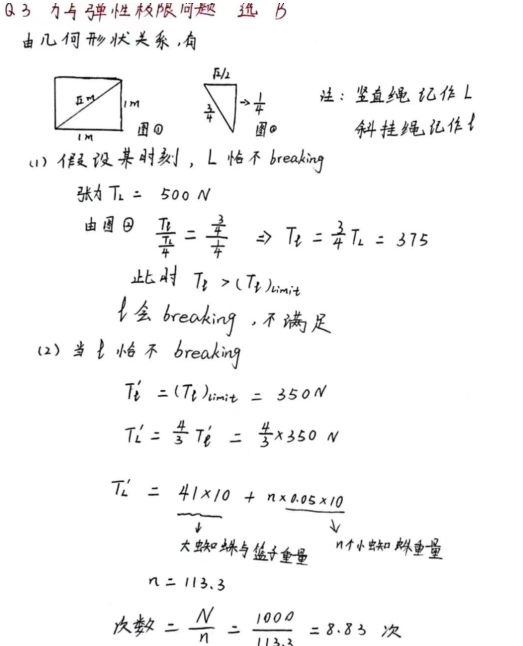 Q3 力与弹性极限问题 选 B
由几何形状关系,有
√2m 1m 1m 图①
√2/2 3/4 → 1/4 图②
注: 竖直绳记作 L
斜挂绳记作 l
(1) 假设某时刻, L 恰不 breaking
张力 T_L = 500 N
由图② T_l / (T_L/4) = (3/4) / (1/4) ⇒ T_l = 3/4 T_L = 375
此时 T_l > (T_l)limit
l 会 breaking, 不满足
(2) 当 l 恰不 breaking
T_l' = (T_l)limit = 350 N
T_L' = 4/3 T_l' = 4/3 × 350 N
T_L' = 41×10 + n×0.05×10
大蜘蛛与篮子重量 n个小蜘蛛重量
n = 113.3
次数 = N/n = 1000/113.3 = 8.83 次